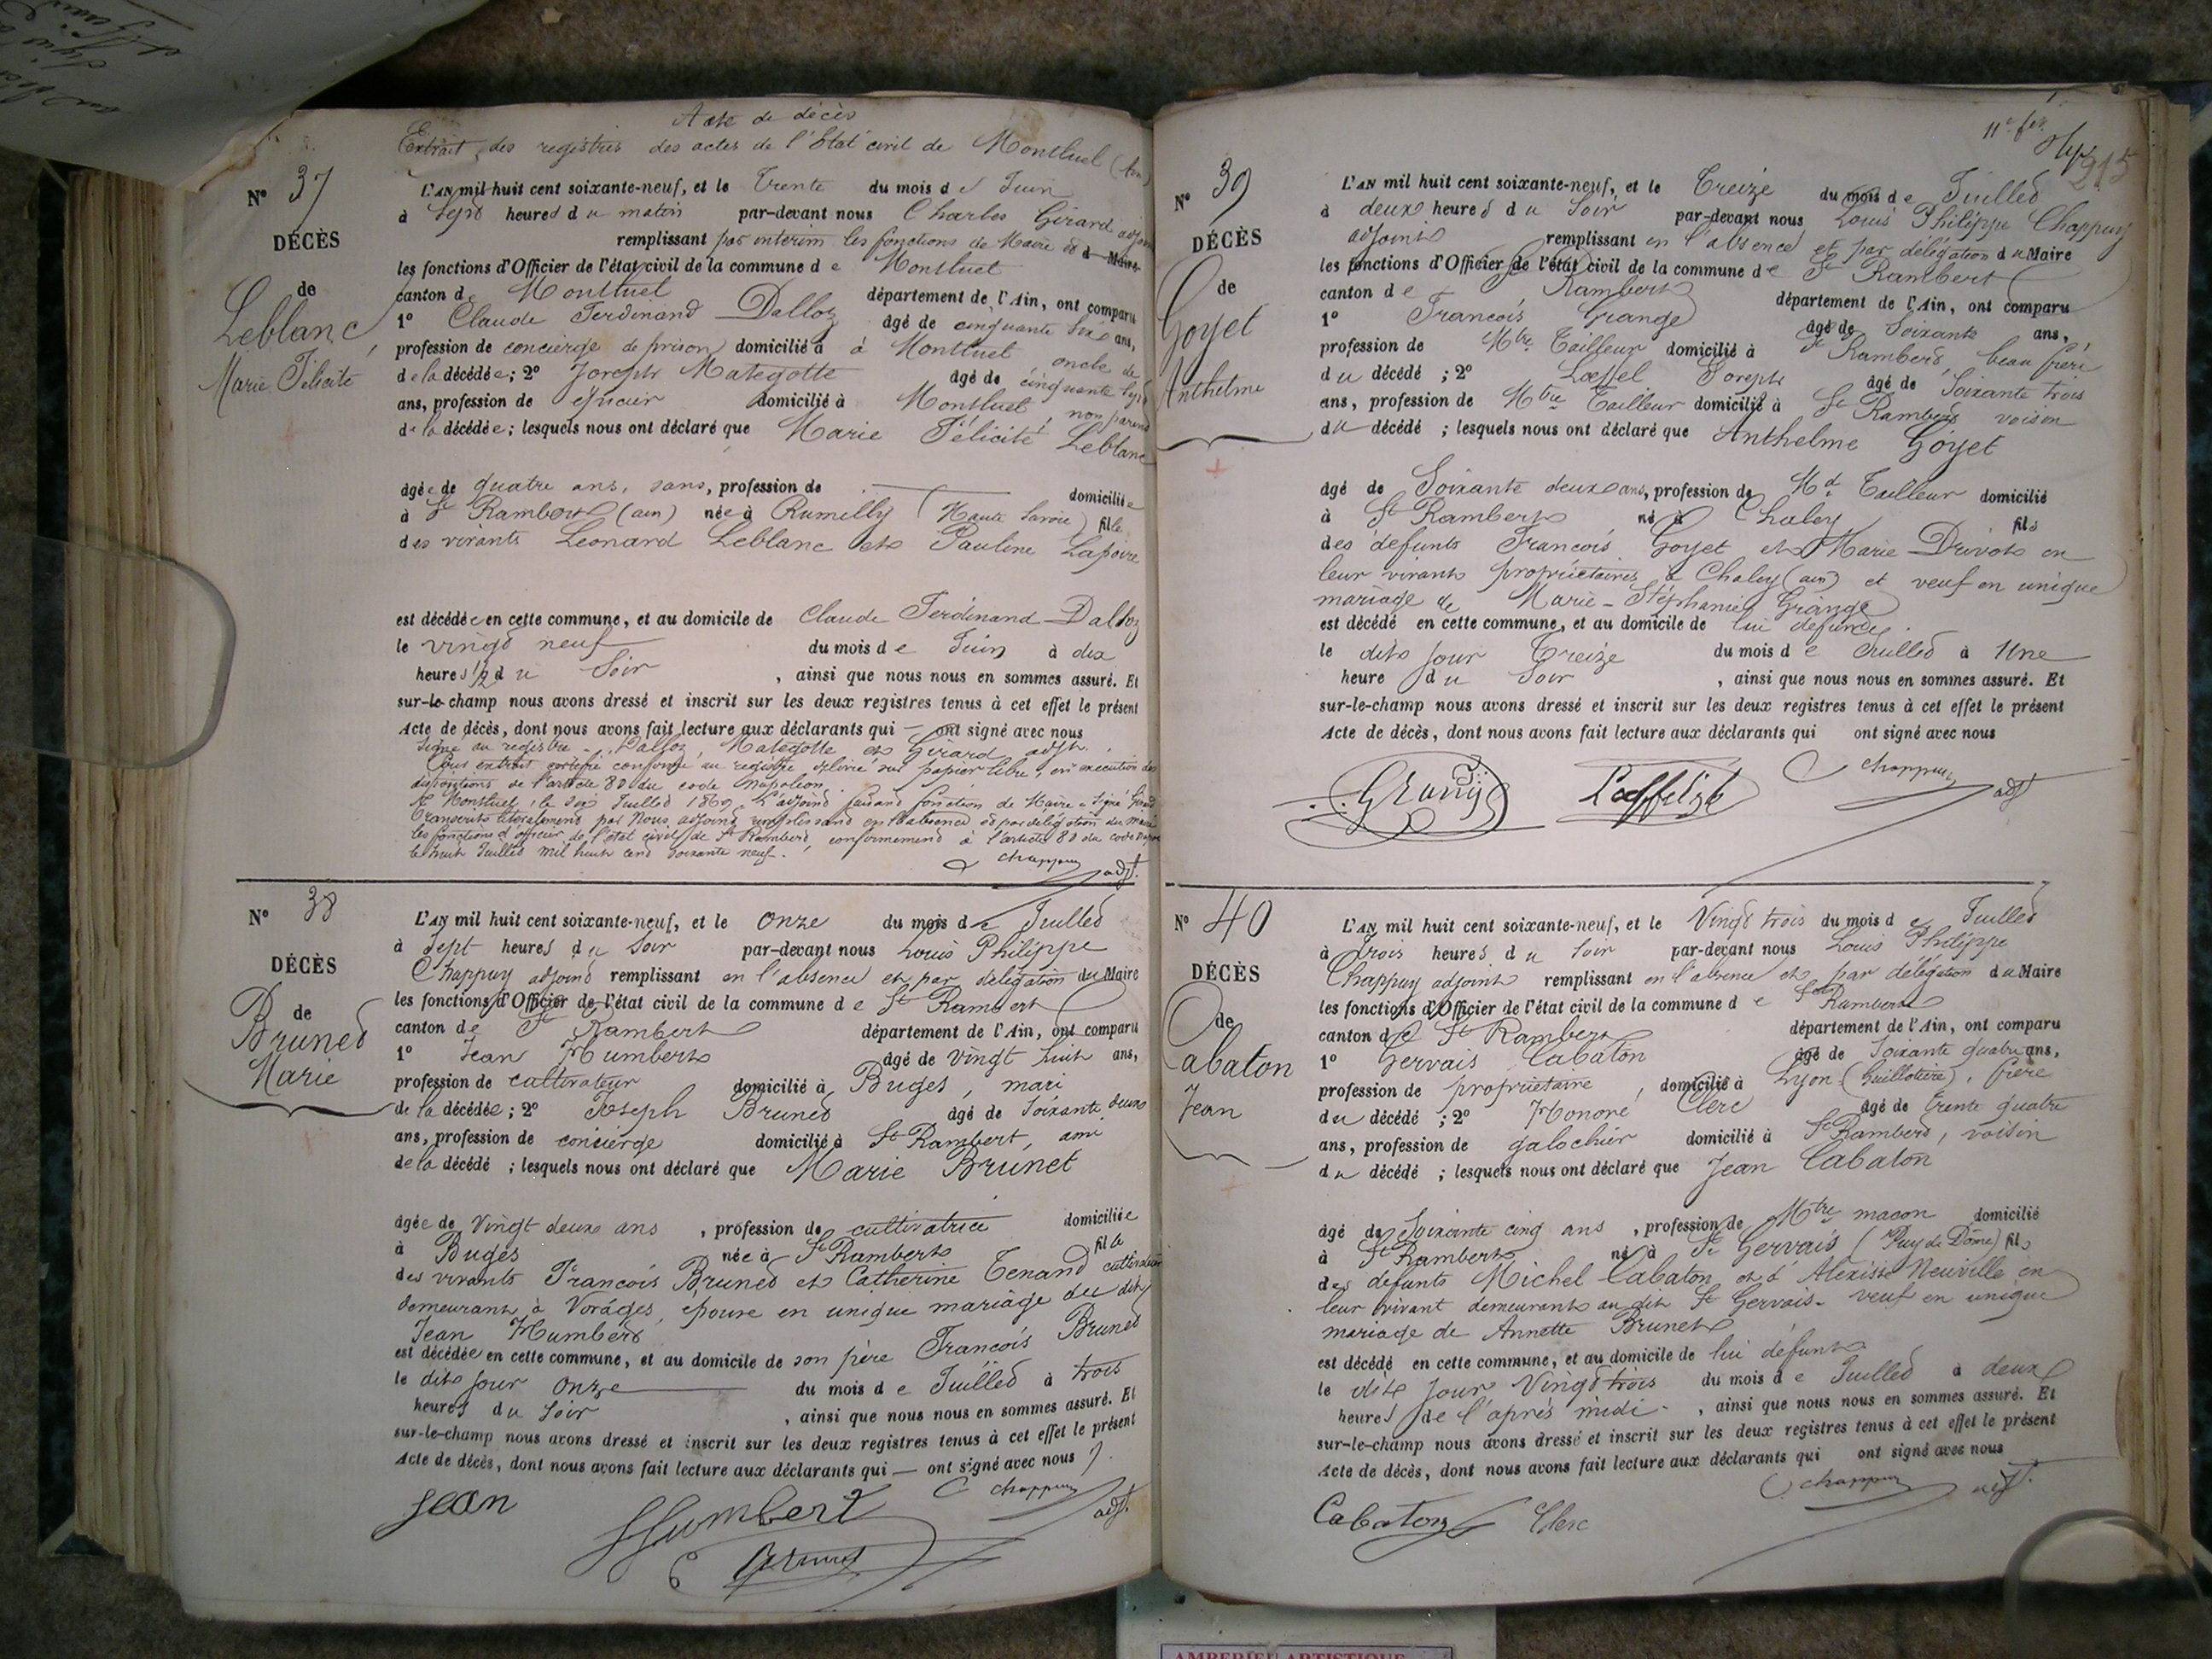 Acte de décès
Extrait des registres des actes de l'Etat civil de Montluel (Ain)
N° 37
DÉCÈS
de
Leblanc
Marie Félicité
L'AN mil huit cent soixante-neuf, et le Trente du mois de Juin
à Sept heures du matin par-devant nous Charles Girard adjoint
remplissant par interim les fonctions de Maire et d Maire
les fonctions d'Officier de l'état civil de la commune de Montluel
canton de Montluel département de l'Ain, ont comparu
1° Claude Ferdinand Dalloz âgé de cinquante six ans,
profession de concierge de prison domicilié à à Montluel oncle de
de la décédée; 2° Joseph Mategotte âgé de cinquante sept
ans, profession de épicier domicilié à Montluel, non parent
de la décédée; lesquels nous ont déclaré que Marie Félicité Leblanc
âgée de quatre ans, sans, profession de domiciliée
à St Rambert (ain) née à Rumilly (Haute Savoie) fille
des vivants Leonard Leblanc et Pauline Lapoire
est décédée en cette commune, et au domicile de Claude Ferdinand Dalloz
le vingt neuf du mois de Juin à dix
heures 1/2 du Soir, ainsi que nous nous en sommes assuré. Et
sur-le-champ nous avons dressé et inscrit sur les deux registres tenus à cet effet le présent
Acte de décès, dont nous avons fait lecture aux déclarants qui — ont signé avec nous
Signé au registre - Dalloz, Mategotte et Girard adjt.
Pour extrait certifié conforme au registre délivré sur papier libre, en exécution des
dispositions de l'article 80 du code Napoléon.
A Montluel, le six Juillet 1869. L'adjoint faisant fonction de Maire - Signé Girard
Transcrits litteralement par Nous, adjoint remplissant en l'absence et par délégation du maire
les fonctions d'officier de l'état civil de St Rambert, conformement à l'article 80 du code
le huit Juillet mil huit cent soixante neuf.
Chappuy adjt.
N° 38
DÉCÈS
de
Brunet
Marie
L'AN mil huit cent soixante-neuf, et le onze du mois de Juillet
à sept heures du Soir par-devant nous Louis Philippe
Chappuy adjoint remplissant en l'absence et par délégation du Maire
les fonctions d'Officier de l'état civil de la commune de St Rambert
canton de St Rambert département de l'Ain, ont comparu
1° Jean Humbert âgé de vingt huit ans,
profession de cultivateur domicilié à Bugès, mari
de la décédée; 2° Joseph Brunet âgé de Soixante deux
ans, profession de concierge domicilié à St Rambert, ami
de la décédé; lesquels nous ont déclaré que Marie Brunet
âgée de Vingt deux ans, profession de cultivatrice domiciliée
à Bugès née à St Rambert fille
des vivants François Brunet et Catherine Tenand cultivateurs
demeurant à Voràges, épouse en unique mariage du dit
Jean Humbert
est décédée en cette commune, et au domicile de son père François Brunet
le dit jour onze du mois de Juillet à trois
heures du Soir, ainsi que nous nous en sommes assuré. Et
sur-le-champ nous avons dressé et inscrit sur les deux registres tenus à cet effet le présent
Acte de décès, dont nous avons fait lecture aux déclarants qui — ont signé avec nous
Chappuy adjt.
Jean Humbert
Brunet
11e fet
215
N° 39
DÉCÈS
de
Goyet
Anthelme
L'AN mil huit cent soixante-neuf, et le Treize du mois de Juillet
à deux heures du Soir par-devant nous Louis Philippe Chappuy
adjoint remplissant en l'absence et par délégation du Maire
les fonctions d'Officier de l'état civil de la commune de St Rambert
canton de Rambert département de l'Ain, ont comparu
1° François Grange âgé de Soixante ans,
profession de Mtre Tailleur domicilié à St Rambert, beau frère
du décédé; 2° Lœffel Joseph âgé de Soixante trois
ans, profession de Mtre Tailleur domicilié à St Rambert voisin
du décédé; lesquels nous ont déclaré que Anthelme Goyet
âgé de Soixante deux ans, profession de Md Tailleur domicilié
à St Rambert né à Chaley fils
des défunts François Goyet et Marie Drivot en
leur vivant propriétaires à Chaley (ain) et veuf en unique
mariage de Marie-Stéphanie Grange
est décédé en cette commune, et au domicile de lui defunt.
le dit jour Treize du mois de Juillet à Une
heure du Soir, ainsi que nous nous en sommes assuré. Et
sur-le-champ nous avons dressé et inscrit sur les deux registres tenus à cet effet le présent
Acte de décès, dont nous avons fait lecture aux déclarants qui ont signé avec nous
Chappuy adjt
N° 40
DÉCÈS
de
Cabaton
Jean
L'AN mil huit cent soixante-neuf, et le Vingt trois du mois de Juillet
à trois heures du Soir par-devant nous Louis Philippe
Chappuy adjoint remplissant en l'absence et par délégation du Maire
les fonctions d'Officier de l'état civil de la commune de St Rambert
canton de St Rambert département de l'Ain, ont comparu
1° Gervais Cabaton âgé de Soixante quatre ans,
profession de propriétaire, domicilié à Lyon (Guillotière), frère
du décédé; 2° Honoré Clerc âgé de trente quatre
ans, profession de galochier domicilié à St Rambert, voisin
du décédé; lesquels nous ont déclaré que Jean Cabaton
âgé de Soixante cinq ans, profession de Mtre macon domicilié
à St Rambert né à St Gervais (Puy de Dôme) fils
des défunts Michel Cabaton et d'Alexisse Neuville en
leur vivant demeurant au dit St Gervais - veuf en unique
mariage de Annette Brunet
est décédé en cette commune, et au domicile de lui défunt
le dit jour Vingt trois du mois de Juillet à deux
heures de l'après midi, ainsi que nous nous en sommes assuré. Et
sur-le-champ nous avons dressé et inscrit sur les deux registres tenus à cet effet le présent
Acte de décès, dont nous avons fait lecture aux déclarants qui ont signé avec nous
Chappuy adjt.
Cabaton Clerc
AMBERIEU ARTISTIQUE